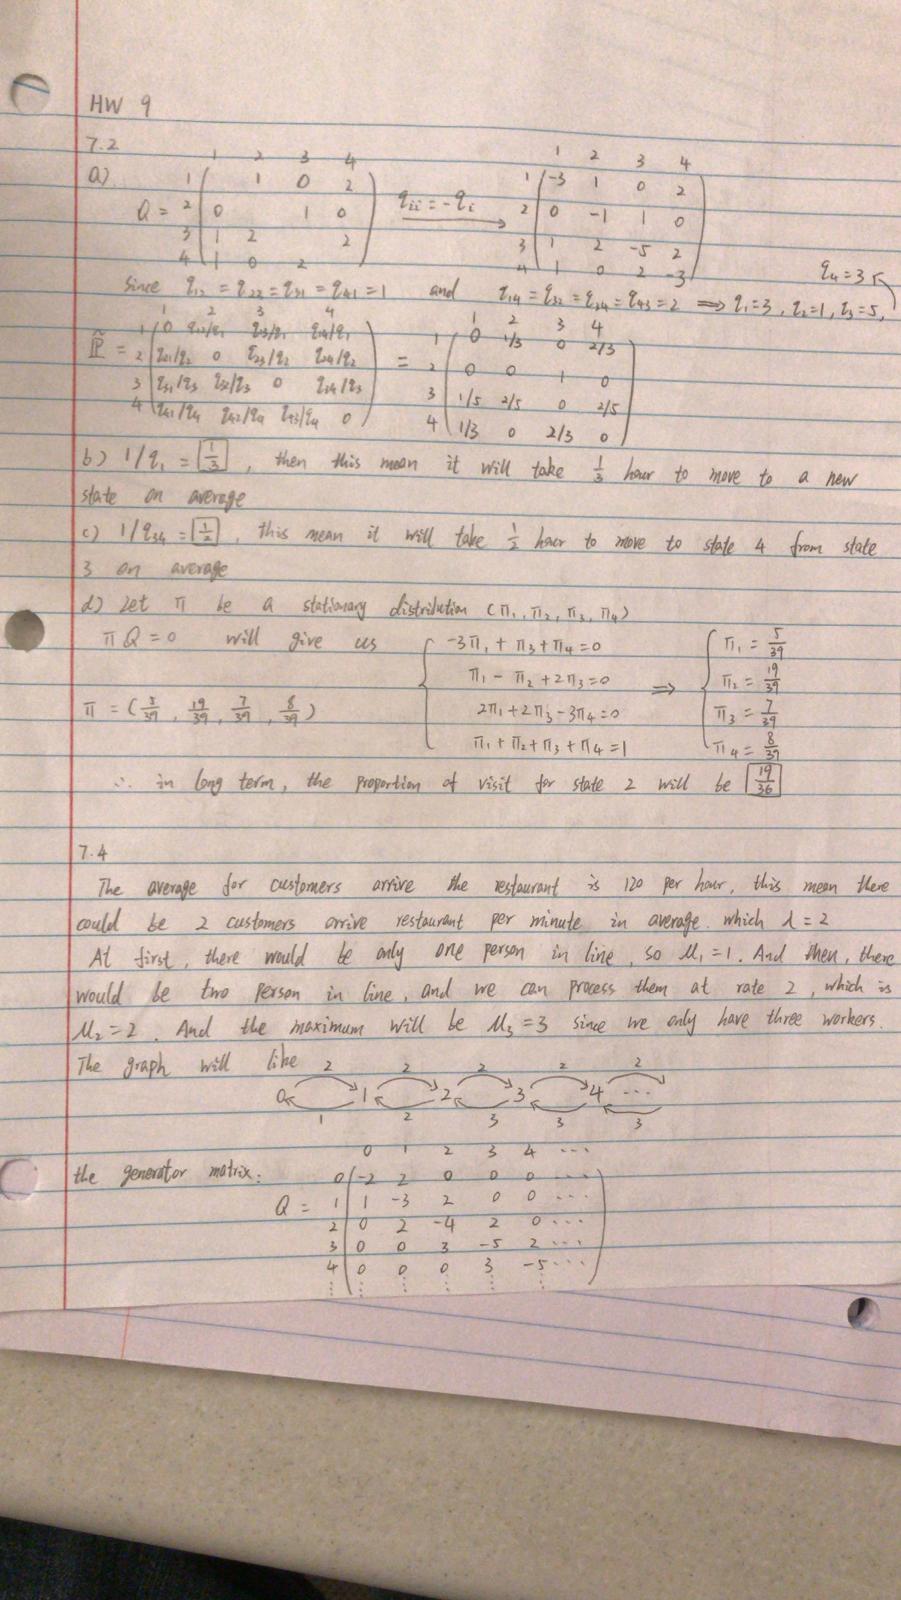 HW 9
7.2
a)
1 2 3 4
1 1 0 2
Q = 2 0 1 0
3 1 2 2
4 1 0 2
q_ii = -q_i
1 2 3 4
1 -3 1 0 2
2 0 -1 1 0
3 1 2 -5 2
4 1 0 2 -3
since q_12 = q_23 = q_31 = q_41 = 1 and q_14 = q_32 = q_34 = q_43 = 2 ⟹ q_1=3, q_2=1, q_3=5,
q_4=3
1 2 3 4
P̃ = 1 0 q_12/q_1 q_13/q_1 q_14/q_1
2 q_21/q_2 0 q_23/q_2 q_24/q_2
3 q_31/q_3 q_32/q_3 0 q_34/q_3
4 q_41/q_4 q_42/q_4 q_43/q_4 0
= 1 2 3 4
1 0 1/3 0 2/3
2 0 0 1 0
3 1/5 2/5 0 2/5
4 1/3 0 2/3 0
b) 1/q_1 = 1/3, then this mean it will take 1/3 hour to move to a new
state on average
c) 1/q_34 = 1/2, this mean it will take 1/2 hour to move to state 4 from state
3 on average
d) Let π be a stationary distribution (π_1, π_2, π_3, π_4)
πQ=0 will give us
-3π_1 + π_3 + π_4 = 0
π_1 - π_2 + 2π_3 = 0
2π_1 + 2π_3 - 3π_4 = 0
π_1 + π_2 + π_3 + π_4 = 1
⟹
π_1 = 5/39
π_2 = 19/39
π_3 = 7/39
π_4 = 8/39
π = ( /39, 19/39, 7/39, 8/39)
∴ in long term, the proportion of visit for state 2 will be 19/36
7.4
The average for customers arrive the restaurant is 120 per hour, this mean there
could be 2 customers arrive restaurant per minute in average. which λ = 2
At first, there would be only one person in line, so μ_1 = 1. And then, there
would be two person in line, and we can process them at rate 2, which is
μ_2 = 2. And the maximum will be μ_3 = 3 since we only have three workers.
The graph will like
2 2 2 2 2
0 1 2 3 4 ...
1 2 3 3 3
the generator matrix:
0 1 2 3 4 ...
0 -2 2 0 0 0 ...
Q = 1 1 -3 2 0 0 ...
2 0 2 -4 2 0 ...
3 0 0 3 -5 2 ...
4 0 0 0 3 -5 ...
⋮ ⋮ ⋮ ⋮ ⋮ ⋮